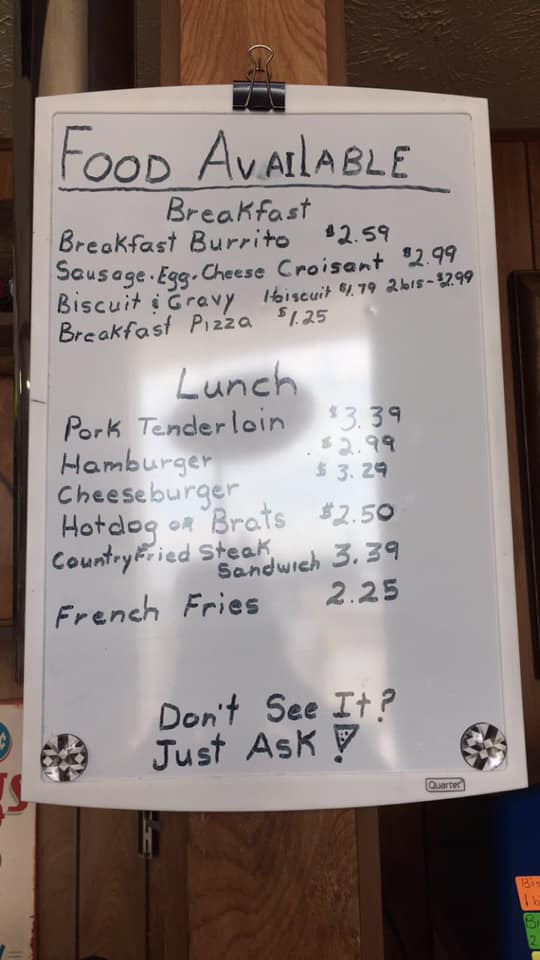 FOOD AVAILABLE
Breakfast
Breakfast Burrito $2.59
Sausage·Egg·Cheese Croisant $2.99
Biscuit & Gravy 1 biscuit $1.79 2 bis-$2.99
Breakfast Pizza $1.25
Lunch
Pork Tenderloin $3.39
Hamburger $2.99
Cheeseburger $3.29
Hotdog OR Brats $2.50
Country Fried Steak
Sandwich 3.39
French Fries 2.25
Don't See It?
Just Ask!
Quartet